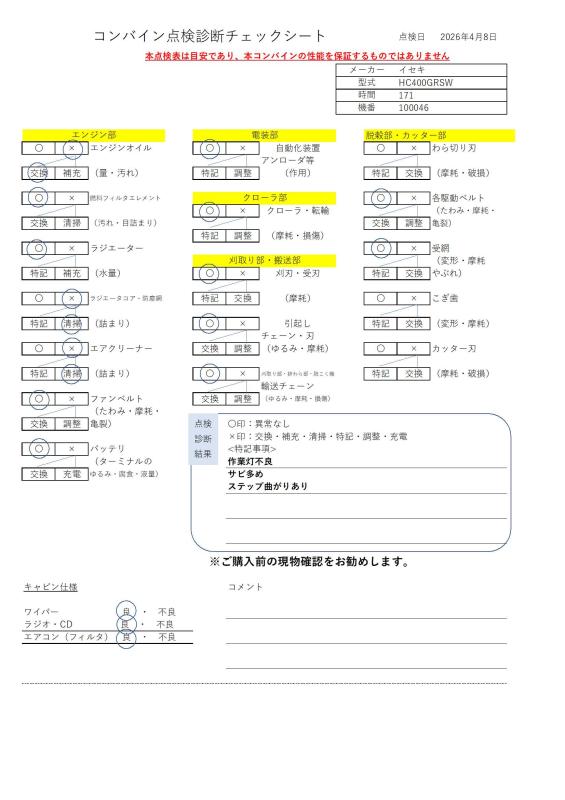 コンバイン点検診断チェックシート
点検日 2026年4月8日
本点検表は目安であり、本コンバインの性能を保証するものではありません
メーカー イセキ
型式 HC400GRSW
時間 171
機番 100046
エンジン部
〇 × エンジンオイル
交換 補充 (量・汚れ)
〇 × 燃料フィルタエレメント
交換 清掃 (汚れ・目詰まり)
〇 × ラジエーター
特記 補充 (水量)
〇 × ラジエータコア・防塵網
特記 清掃 (詰まり)
〇 × エアクリーナー
特記 清掃 (詰まり)
〇 × ファンベルト
(たわみ・摩耗・
交換 調整 亀裂)
〇 × バッテリ
(ターミナルの
交換 充電 ゆるみ・腐食・液量)
電装部
〇 × 自動化装置
アンローダ等
特記 調整 (作用)
クローラ部
〇 × クローラ・転輪
交換 調整 (摩耗・損傷)
刈取り部・搬送部
〇 × 刈刃・受刃
特記 交換 (摩耗)
〇 × 引起し
チェーン・刃
交換 調整 (ゆるみ・摩耗)
〇 ×
輸送チェーン
交換 調整 (ゆるみ・摩耗・損傷)
脱穀部・カッター部
〇 × わら切り刃
特記 交換 (摩耗・破損)
〇 × 各駆動ベルト
(たわみ・摩耗・
交換 調整 亀裂)
〇 × 受網
(変形・摩耗
特記 交換 やぶれ)
〇 × こぎ歯
特記 交換 (変形・摩耗)
〇 × カッター刃
特記 交換 (摩耗・破損)
点検
診断
結果
〇印：異常なし
×印：交換・補充・清掃・特記・調整・充電
<特記事項>
作業灯不良
サビ多め
ステップ曲がりあり
※ご購入前の現物確認をお勧めします。
キャビン仕様
ワイパー 良 ・ 不良
ラジオ・CD 良 ・ 不良
エアコン（フィルタ） 良 ・ 不良
コメント